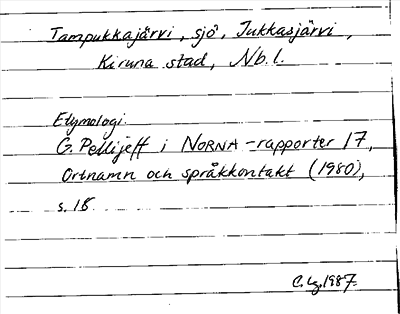 Tampukkajärvi, sjö, Jukkasjärvi,
Kiruna stad, Nb. l.
Etymologi:
G. Pellijeff i NORNA-rapporter 17,
Ortnamn och språkkontakt (1980),
s. 18
C. Lg. 1987.